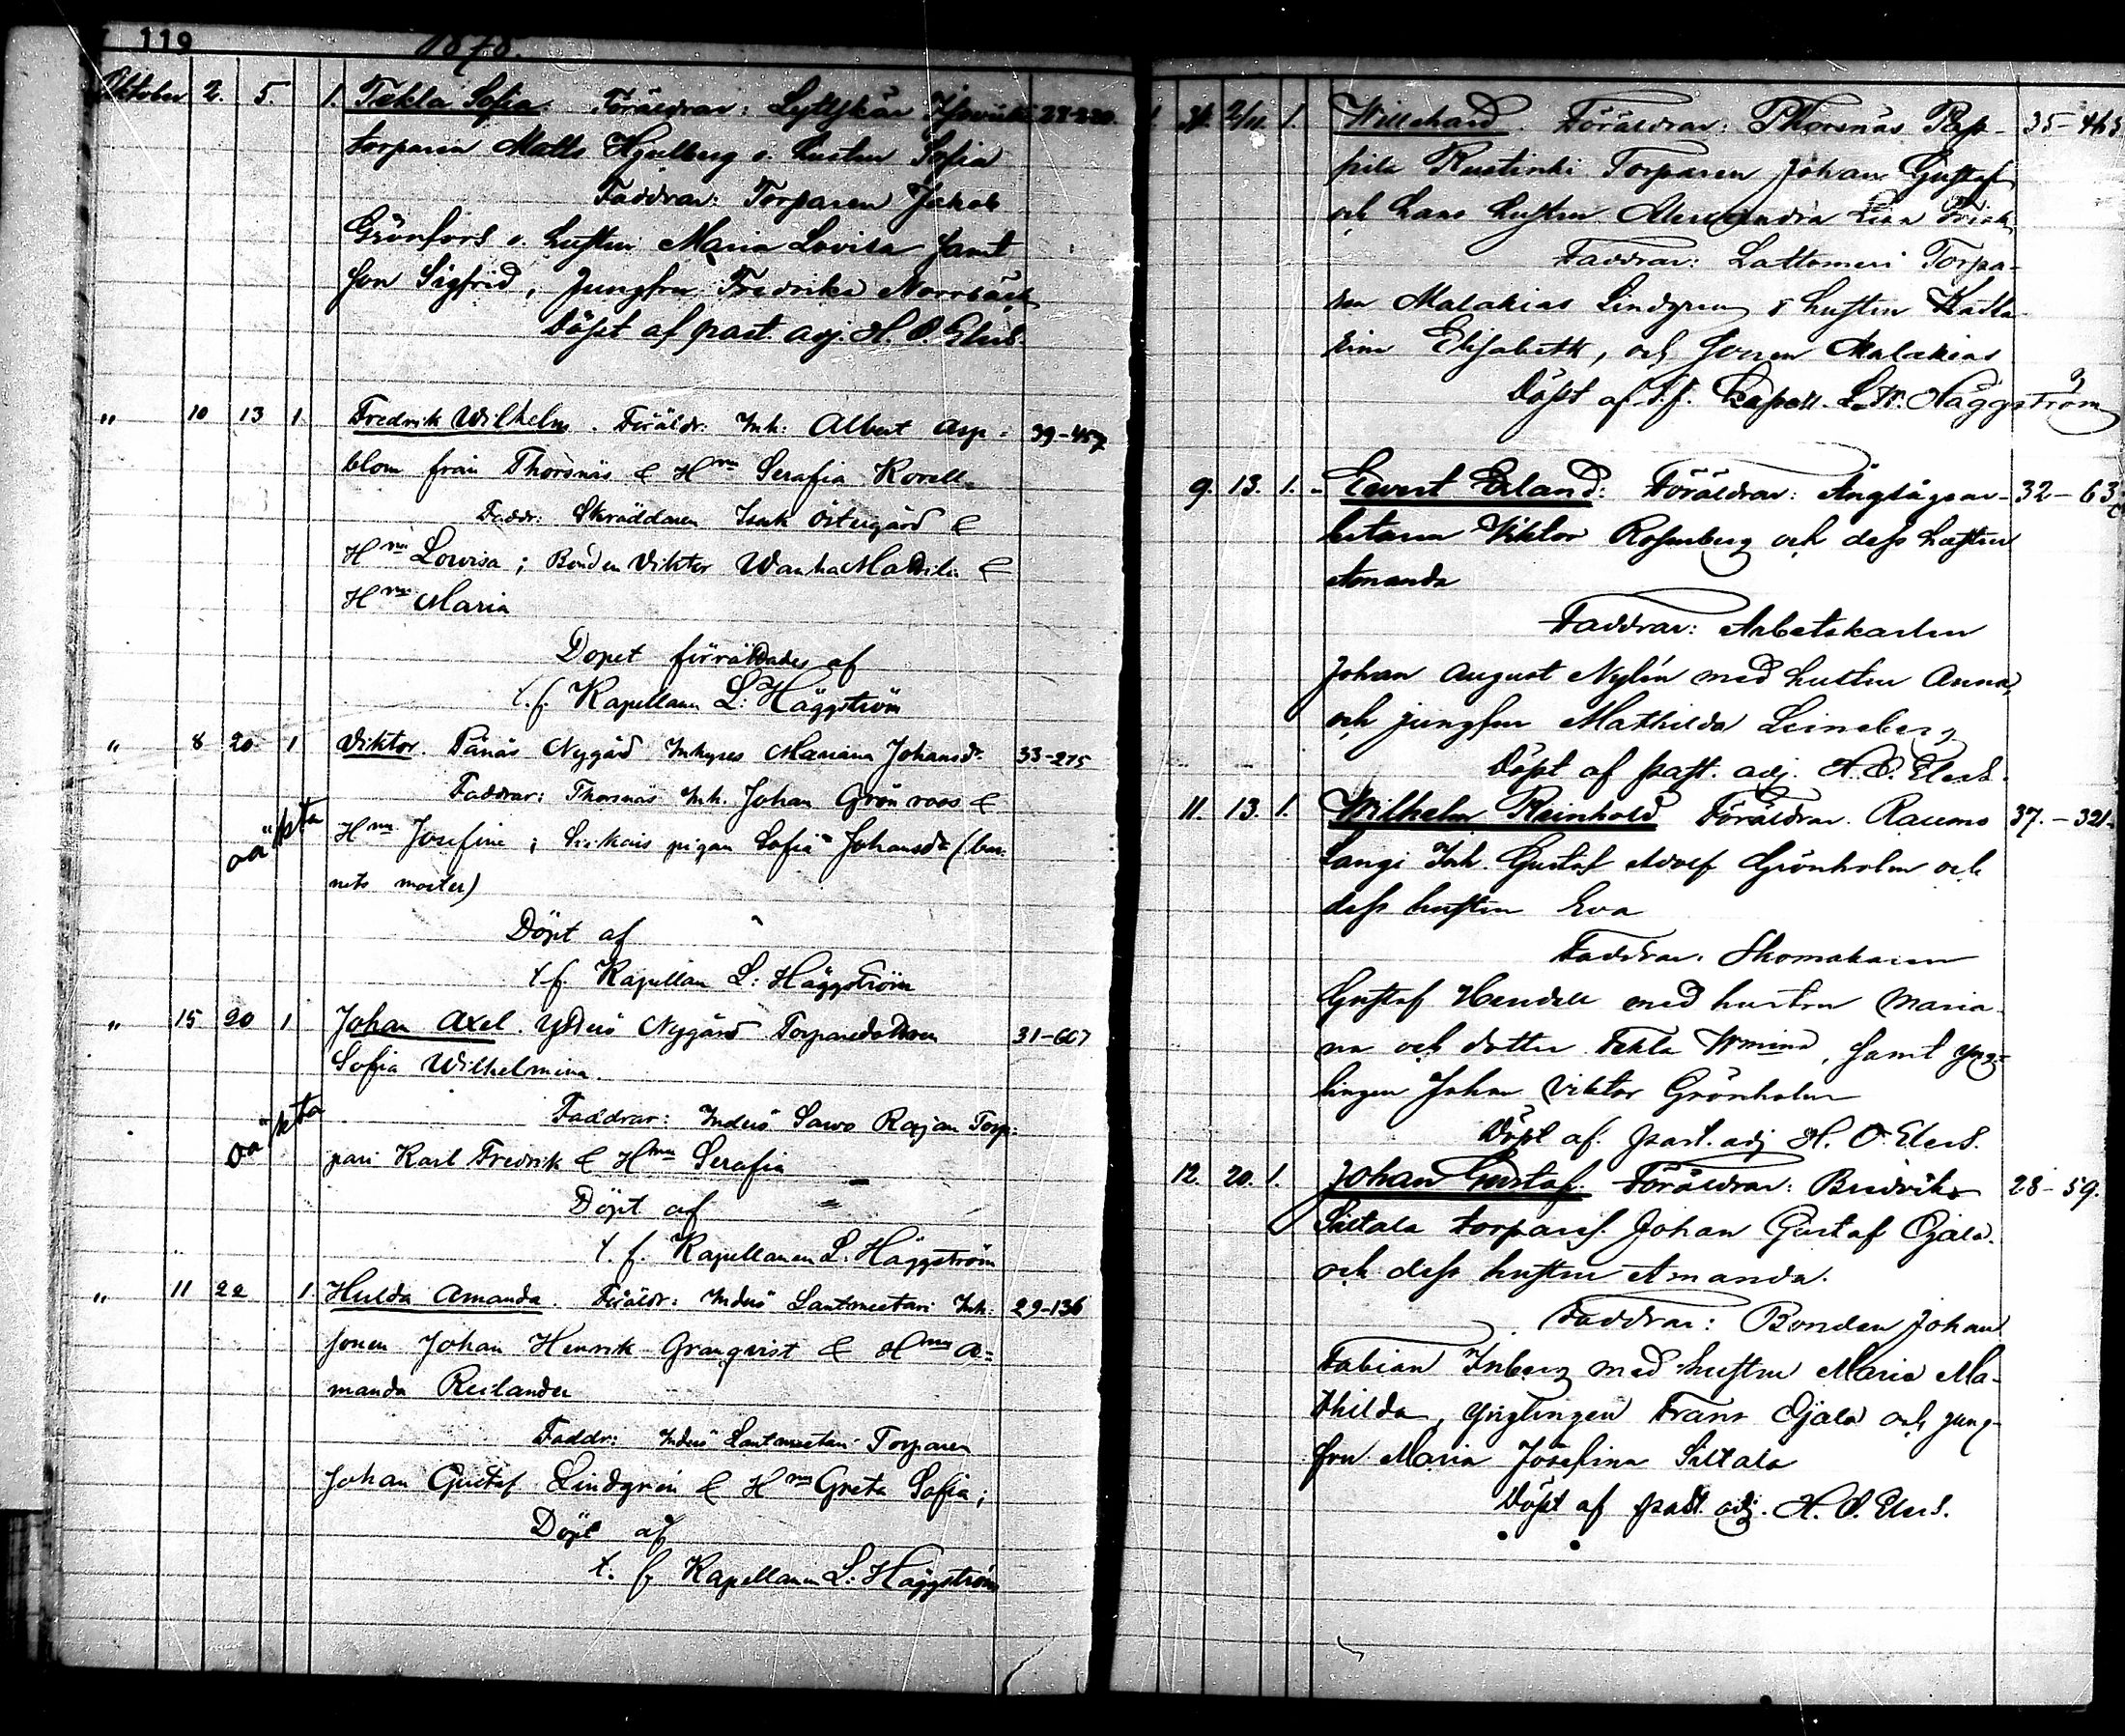 119
1878.
Oktober 2. 5. 1. Tekla Sofia. Föräldrar: Lyttskär 28-220.
torparen Matts Hjulberg o. hustru Sofia
Faddrar: Torparen Jakob
Grönfors o. hustru Maria Lovisa samt
son Sigfrid, Jungfru Fredrika Norrbäck
Döpt af past. adj. H. O. Elers.
" 10 13 1. Fredrik Wilhelm. Föräldr: Inh: Albert Asp- 39-457
blom från Thorsnäs & Hrun Serafia Korell
Faddr: Skräddaren Isak Östergård &
Hrun Lovisa; Bonden Viktor &
Hrun Maria
Dopet förrättades af
t.f. Kapellanen L: Häggström
" 8 20 1 Viktor. Pänäs Nygård Inhyses Mariana Johansdr 33-275
Faddrar: Thorsnäs Inh. Johan Grönroos &
oäkta Hrun Josefina; pigan Sofia Johansdr (bar-
nets moster)
Döpt af
t.f. Kapellan L: Häggström
" 15 20 1 Johan Axel. Ytterö Nygård Torparedottren 31-607
Sofia Wilhelmina.
oäkta Faddrar: Inderö Sawo Rajan Torp-
pari Karl Fredrik & Hrun Serafia
Döpt af
t. f. Kapellanen L. Häggström
" 11 22 1. Hulda Amanda. Föräldr: Inderö Lantmeetari Inh: 29-136
sonen Johan Henrik Granqvist & Hrun A=
manda Reilander
Faddr: Inderö Lantmeetari Torparen
Johan Gustaf Lindgren & Hrun Greta Sofia;
Döpt af
t. f. Kapellanen L: Häggström
31. 2/11 1. Willehard. Föräldrar: Thorsnäs Pap- 35-463
pila Torparen Johan Gustaf
och hans hustru Alexandra Lina
Faddrar: Lattomeri Torpa-
ren Malakias Lindgren & hustru Katta-
rina Elisabeth, och sonen Malakias
Döpt af t.f. Kapell. L. W. Häggström
9. 13. 1. Evert Erland: Föräldrar: Ångsågsar- 32-63
betaren Viktor Rosenberg och dess hustru
Amanda
Faddrar: Arbetskarlen
Johan August Nylén med hustru Anna,
och jungfru Mathilda Leineberg
Döpt af past. adj. H. O. Elers.
11. 13. 1. Wilhelm Reinhold Föräldrar. Raumo 37.-321.
Langi Inh. Gustaf Adolf Grönholm och
dess hustru Eva
Faddrar. Skomakaren
Gustaf Hendell med hustru Maria-
na och dotter Tekla Wmina, samt yng=
lingen Johan Viktor Grönholm
Döpt af. past. adj H. O. Elers.
12. 20. 1. Johan Gustaf. Föräldrar: Bredviks 28-59.
Siltala torpares. Johan Gustaf Ojala.
och dess hustru Amanda.
Faddrar: Bonden Johan
Fabian Inberg med hustru Maria Ma-
thilda, ynglingen Frans Ojala och jung-
fru Maria Josefina Siltala
Döpt af past. adj. H. O. Elers.